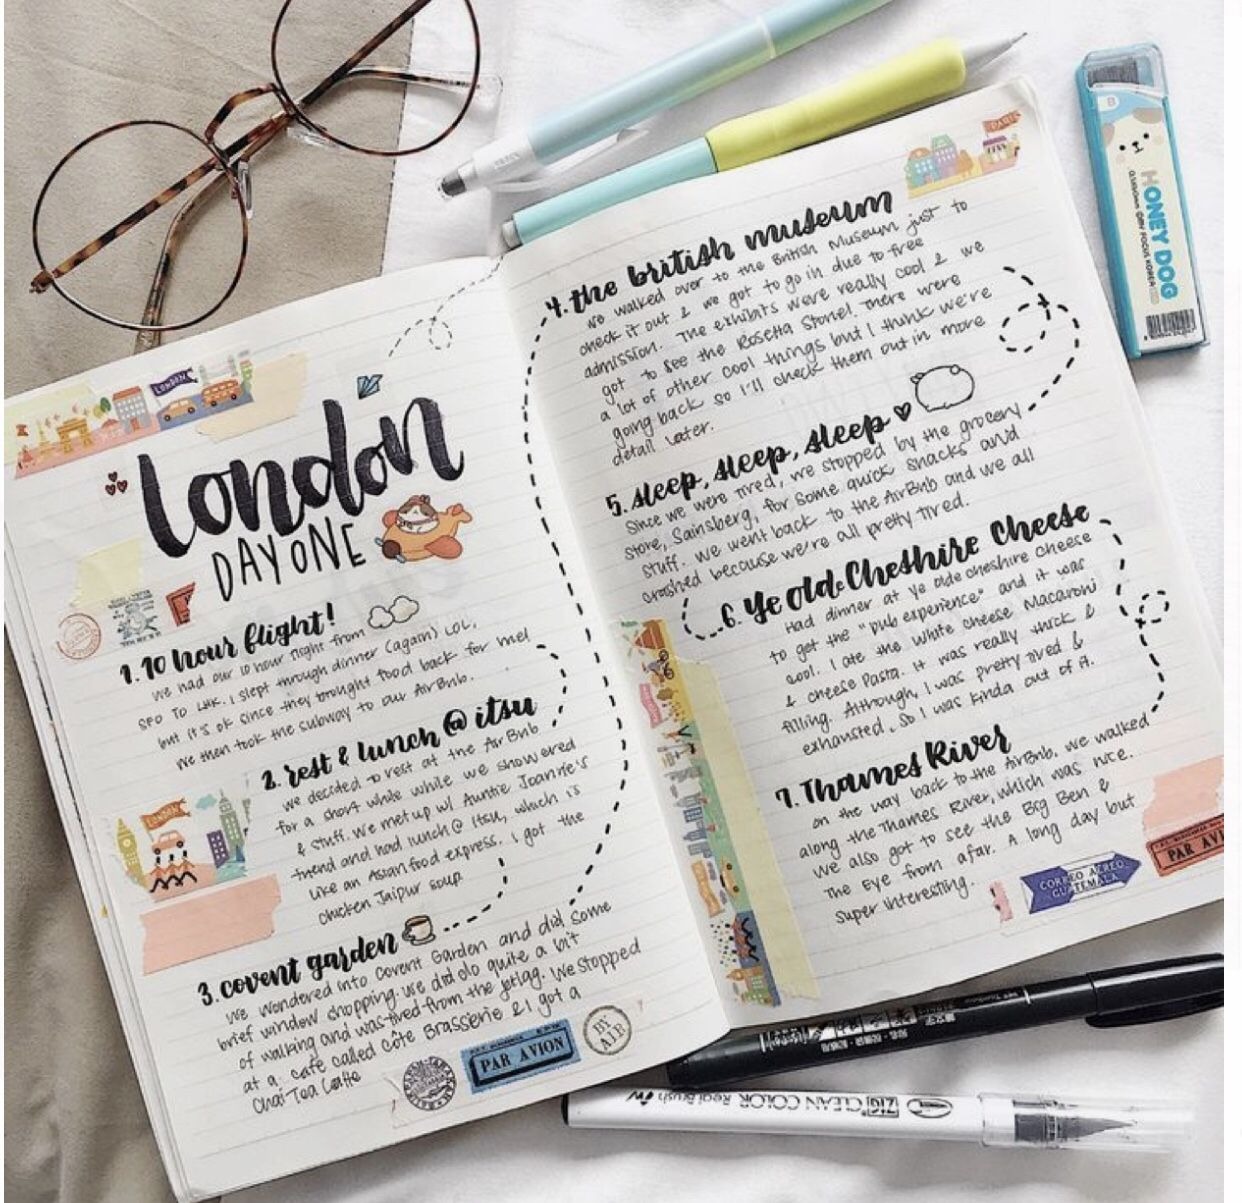 LONDON
London
DAY ONE
1. 10 hour flight!
We had our 10 hour flight from
SFO TO LHR. I slept through dinner (again) LOL,
but it's ok since they brought food back for me!
We then took the subway to our AirBnb.
2. rest & lunch @ itsu
We decided to rest at the AirBnb
for a short while while we showered
& stuff. We met up w/ Auntie Joanne's
friend and had lunch @ Itsu, which is
like an Asian food express. I got the
chicken Jaipur soup
LONDON
3. covent garden
We wondered into Covent Garden and did some
brief window shopping. We did do quite a bit
of walking and was tired from the jetlag. We stopped
at a café called Côte Brasserie & I got a
Chai Tea Latte
PAR AVION
BY AIR
PARIS
4. the british museum
We walked over to the British Museum just to
check it out & we got to go in due to free
admission. The exhibits were really cool & we
got to see the Rosetta Stone! There were
a lot of other cool things but I think we're
going back so I'll check them out in more
detail later.
5. sleep, sleep, sleep
Since we were tired, we stopped by the grocery
store, Sainsberg, for some quick snacks and
stuff. We went back to the AirBnb and we all
crashed because we're all pretty tired.
6. Ye Olde Cheshire Cheese
Had dinner at ye olde cheshire cheese
to get the "pub experience" and it was
cool. I ate the white cheese Macaroni
& cheese Pasta. It was really thick &
filling. Although, I was pretty tired &
exhausted, so I was kinda out of it.
7. Thames River
On the way back to the AirBnb, we walked
along the Thames River, which was nice.
We also got to see the Big Ben &
The Eye from afar. A long day but
super interesting.
CORREO AEREO
GUATEMALA
PAR AVI
B
HONEY DOG
ZIG CLEAN COLOR Real Brush